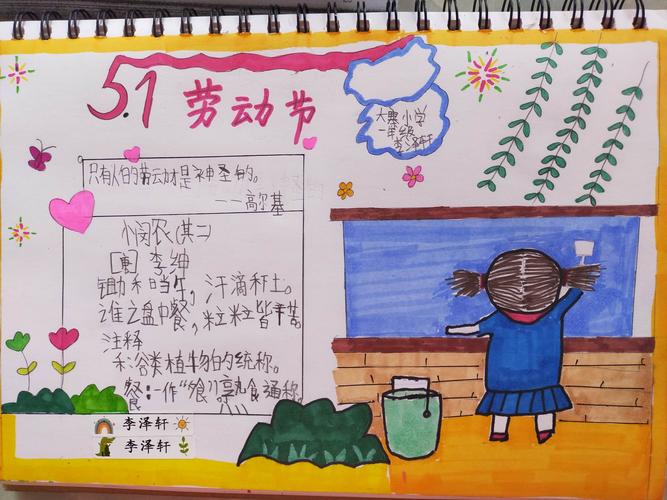 5.1 劳动节
大寨小学
一年级
李泽轩
只有人的劳动才是神圣的。
——高尔基
悯农(其二)
[唐] 李绅
锄禾日当午,汗滴禾土。
谁之盘中餐,粒粒皆辛苦。
注释
禾:谷类植物的统称。
餐:一作“飧”。熟食通称。
李泽轩
李泽轩